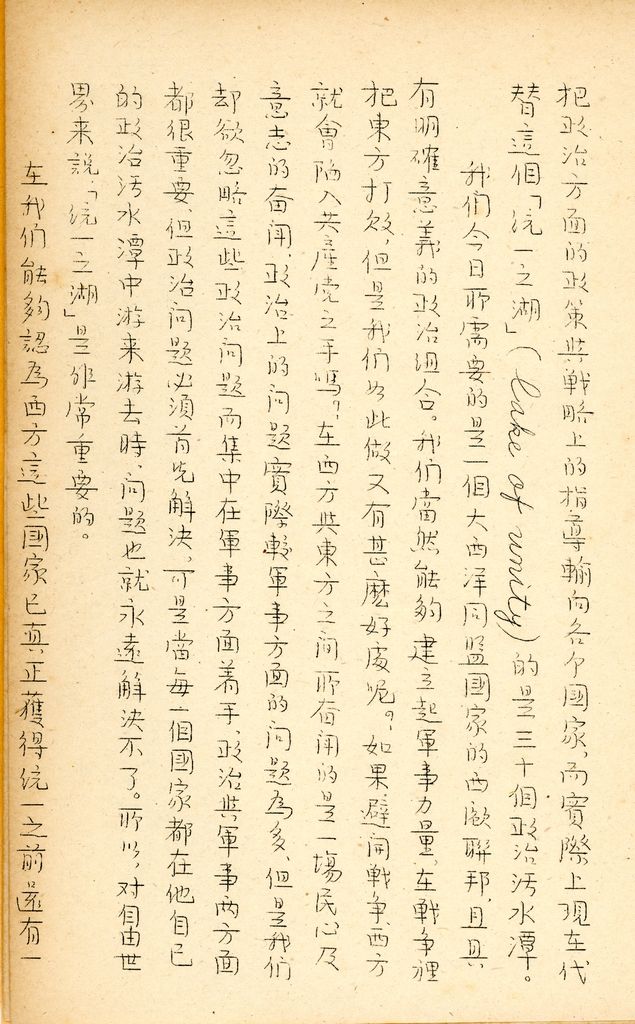 把政治方面的政策與戰略上的指導輸向各个國家、而實際上現在代
替這個「统一之湖」(Lake of unity)的是三十個政治污水潭。
我们今日所需要的是一個大西洋同盟國家的西歐聯邦，且具
有明確意義的政治组合。我们當然能夠建立起軍事力量，在戰争裡
把東方打敗，但是我们如此做又有甚麽好處呢？如果避開戰争西方
就會陷入共産党之手嗎？在西方與東方之间所奋闹的是一塲民心及
意志的奋闹，政治上的问题實際較軍事方面的问题為多、但是我们
却欲忽略這些政治问题而集中在軍事方面着手，政治與軍事两方面
都很重要，但政治问题必須首先解決，可是當每一個國家都在他自己
的政治污水潭中游来游去時、问题也就永遠解決不了。所以对自由世
界来説，「统一之湖」是非常重要的。
在我们能夠認為西方這些國家已真正獲得统一之前還有一